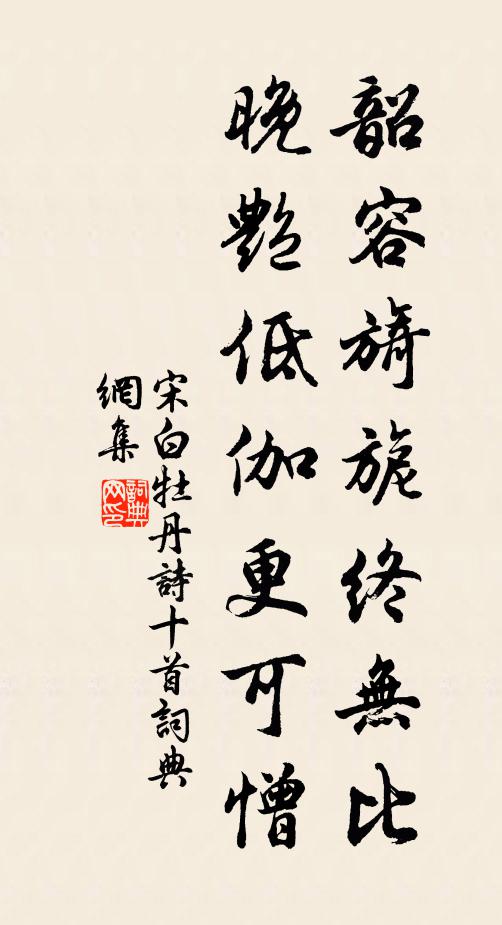 韶容旖旎終無比
晚艷低伽更可憎
宋白牡丹詩十首詞典
網集
詞典
网印